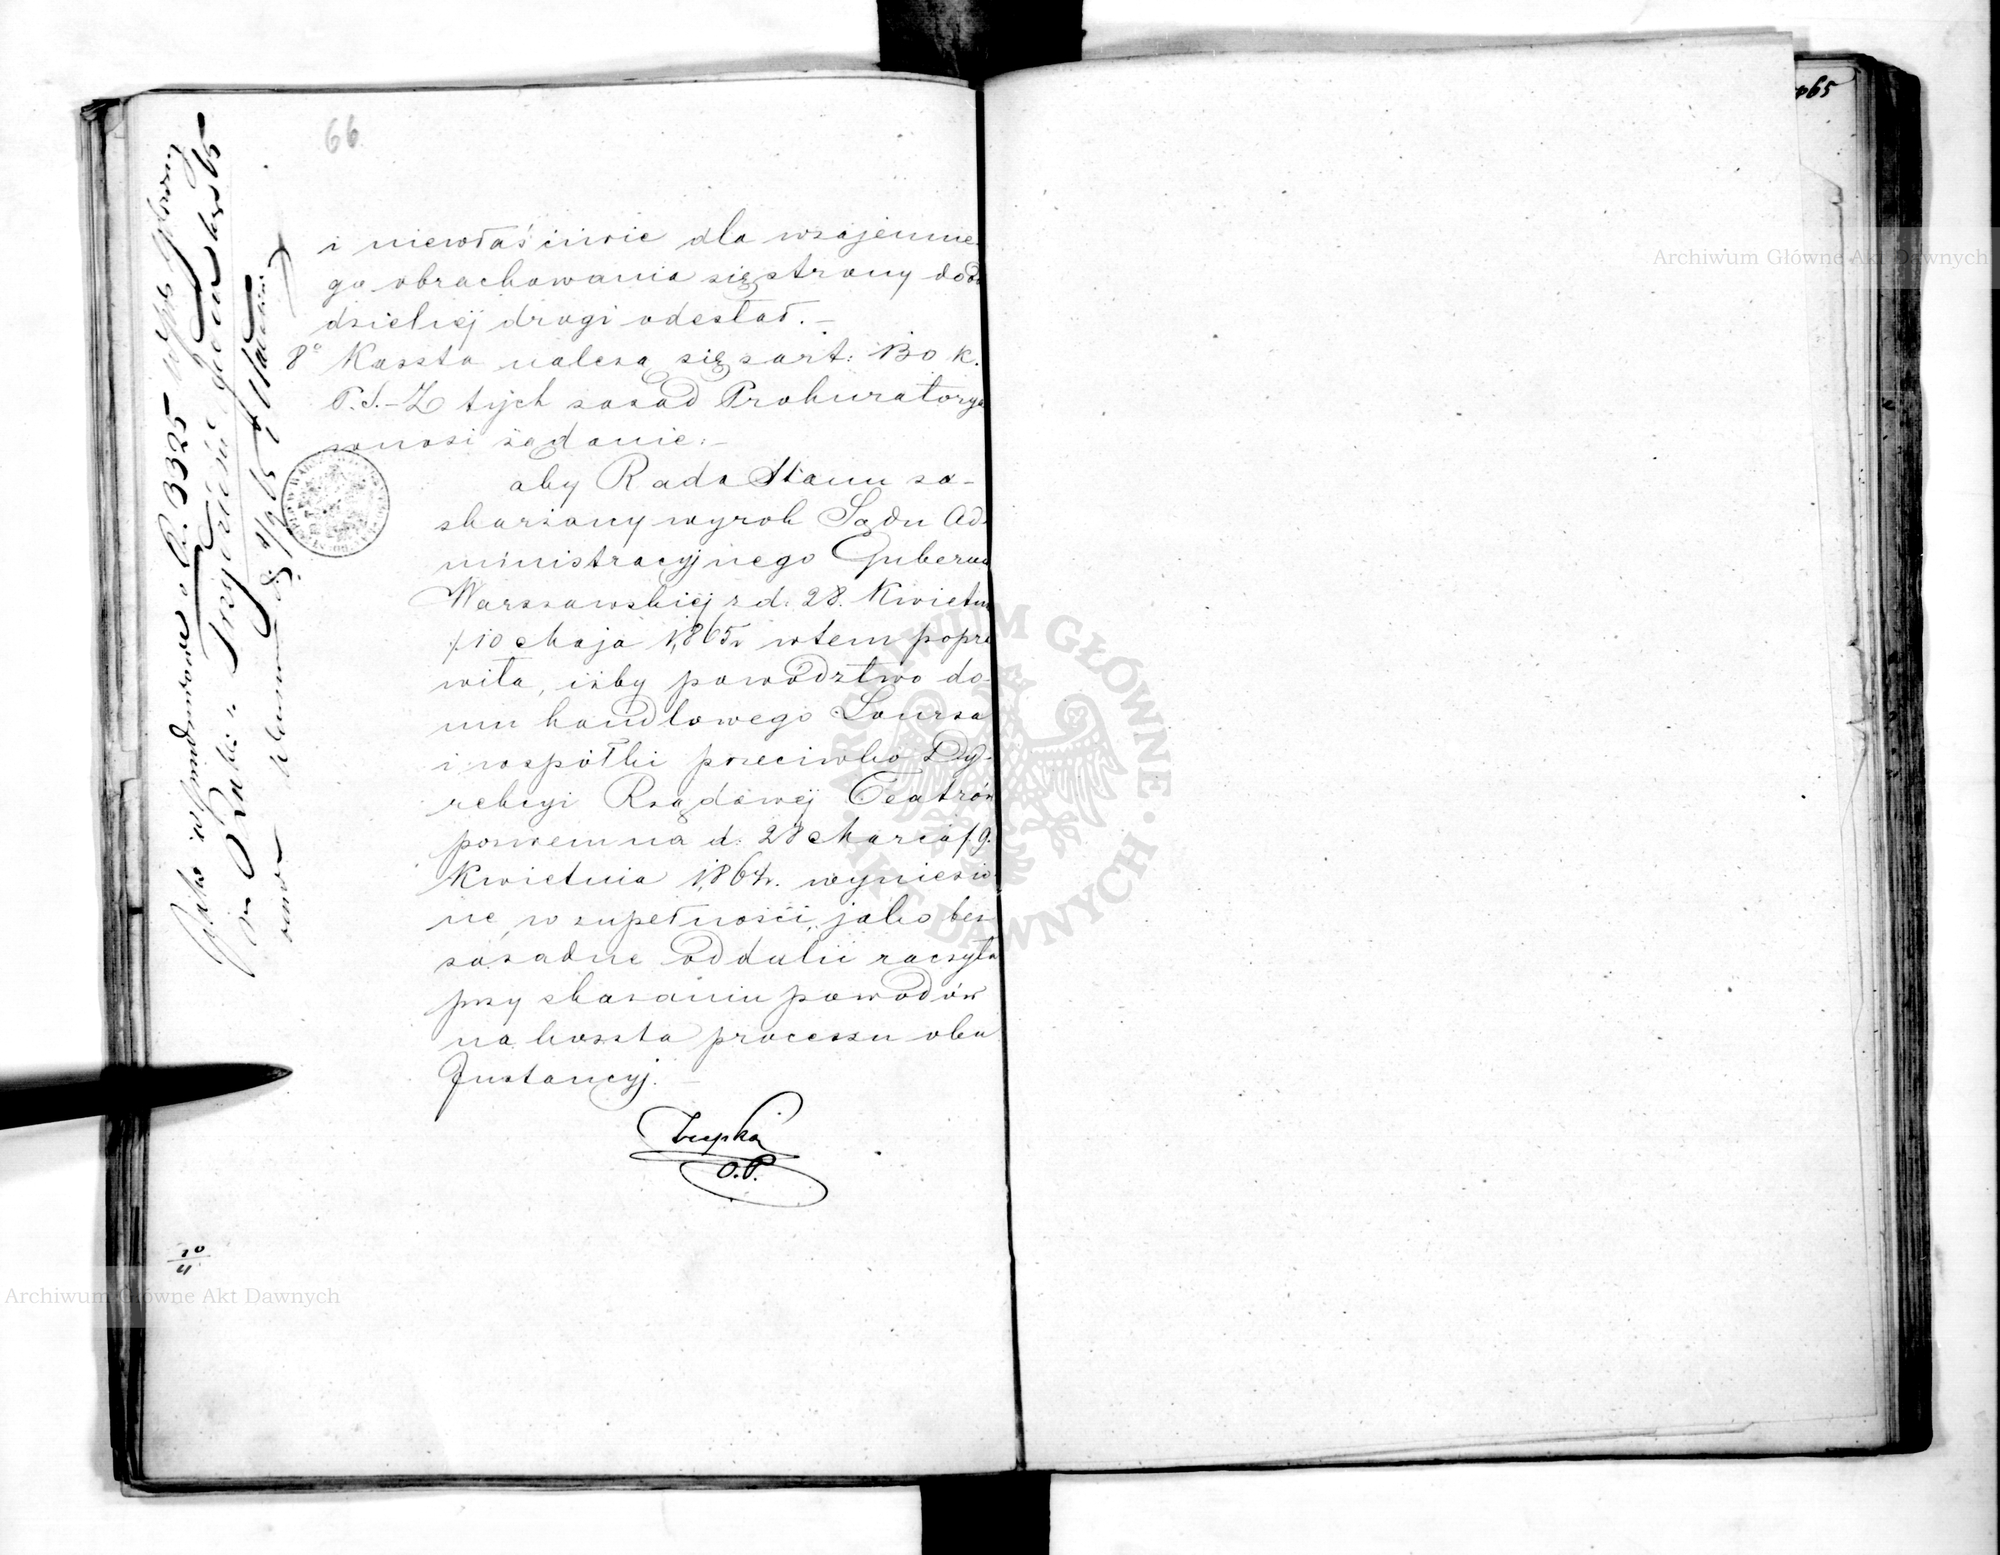 66
i niewłaściwie dla wzajemne-
go obrachowania się strony do od
dzielnéj drogi odesłał. –
8° Koszta należą się z art: 130 K.
P. S. – Z tych zasad Prokuratorya
wnosi żądanie: –
aby Rada Stanu za-
skarżony wyrok Sądu Ad-
ministracyjnego Guberni
Warszawskiéj z d: 28. Kwietn
/10 Maja 1865 r w tem popra
wiła, iżby powództwo do-
mu handlowego Loursa
i wspólki przeciwko Dy-
rekcyi Rządowéj Teatrów
pozwem na d: 28 Marca / 9.
Kwietnia 1864 r. wyniesio
ne, w zupełności, jako bez-
zasadne oddalić raczyła
przy skazaniu powodów
na koszta processu obu
Instancyj. –
O.P.
10/11
№ 3325
65
Archiwum Główne Akt Dawnych
Archiwum Główne Akt Dawnych
ARCHIWUM GŁÓWNE · AKT DAWNYCH ·